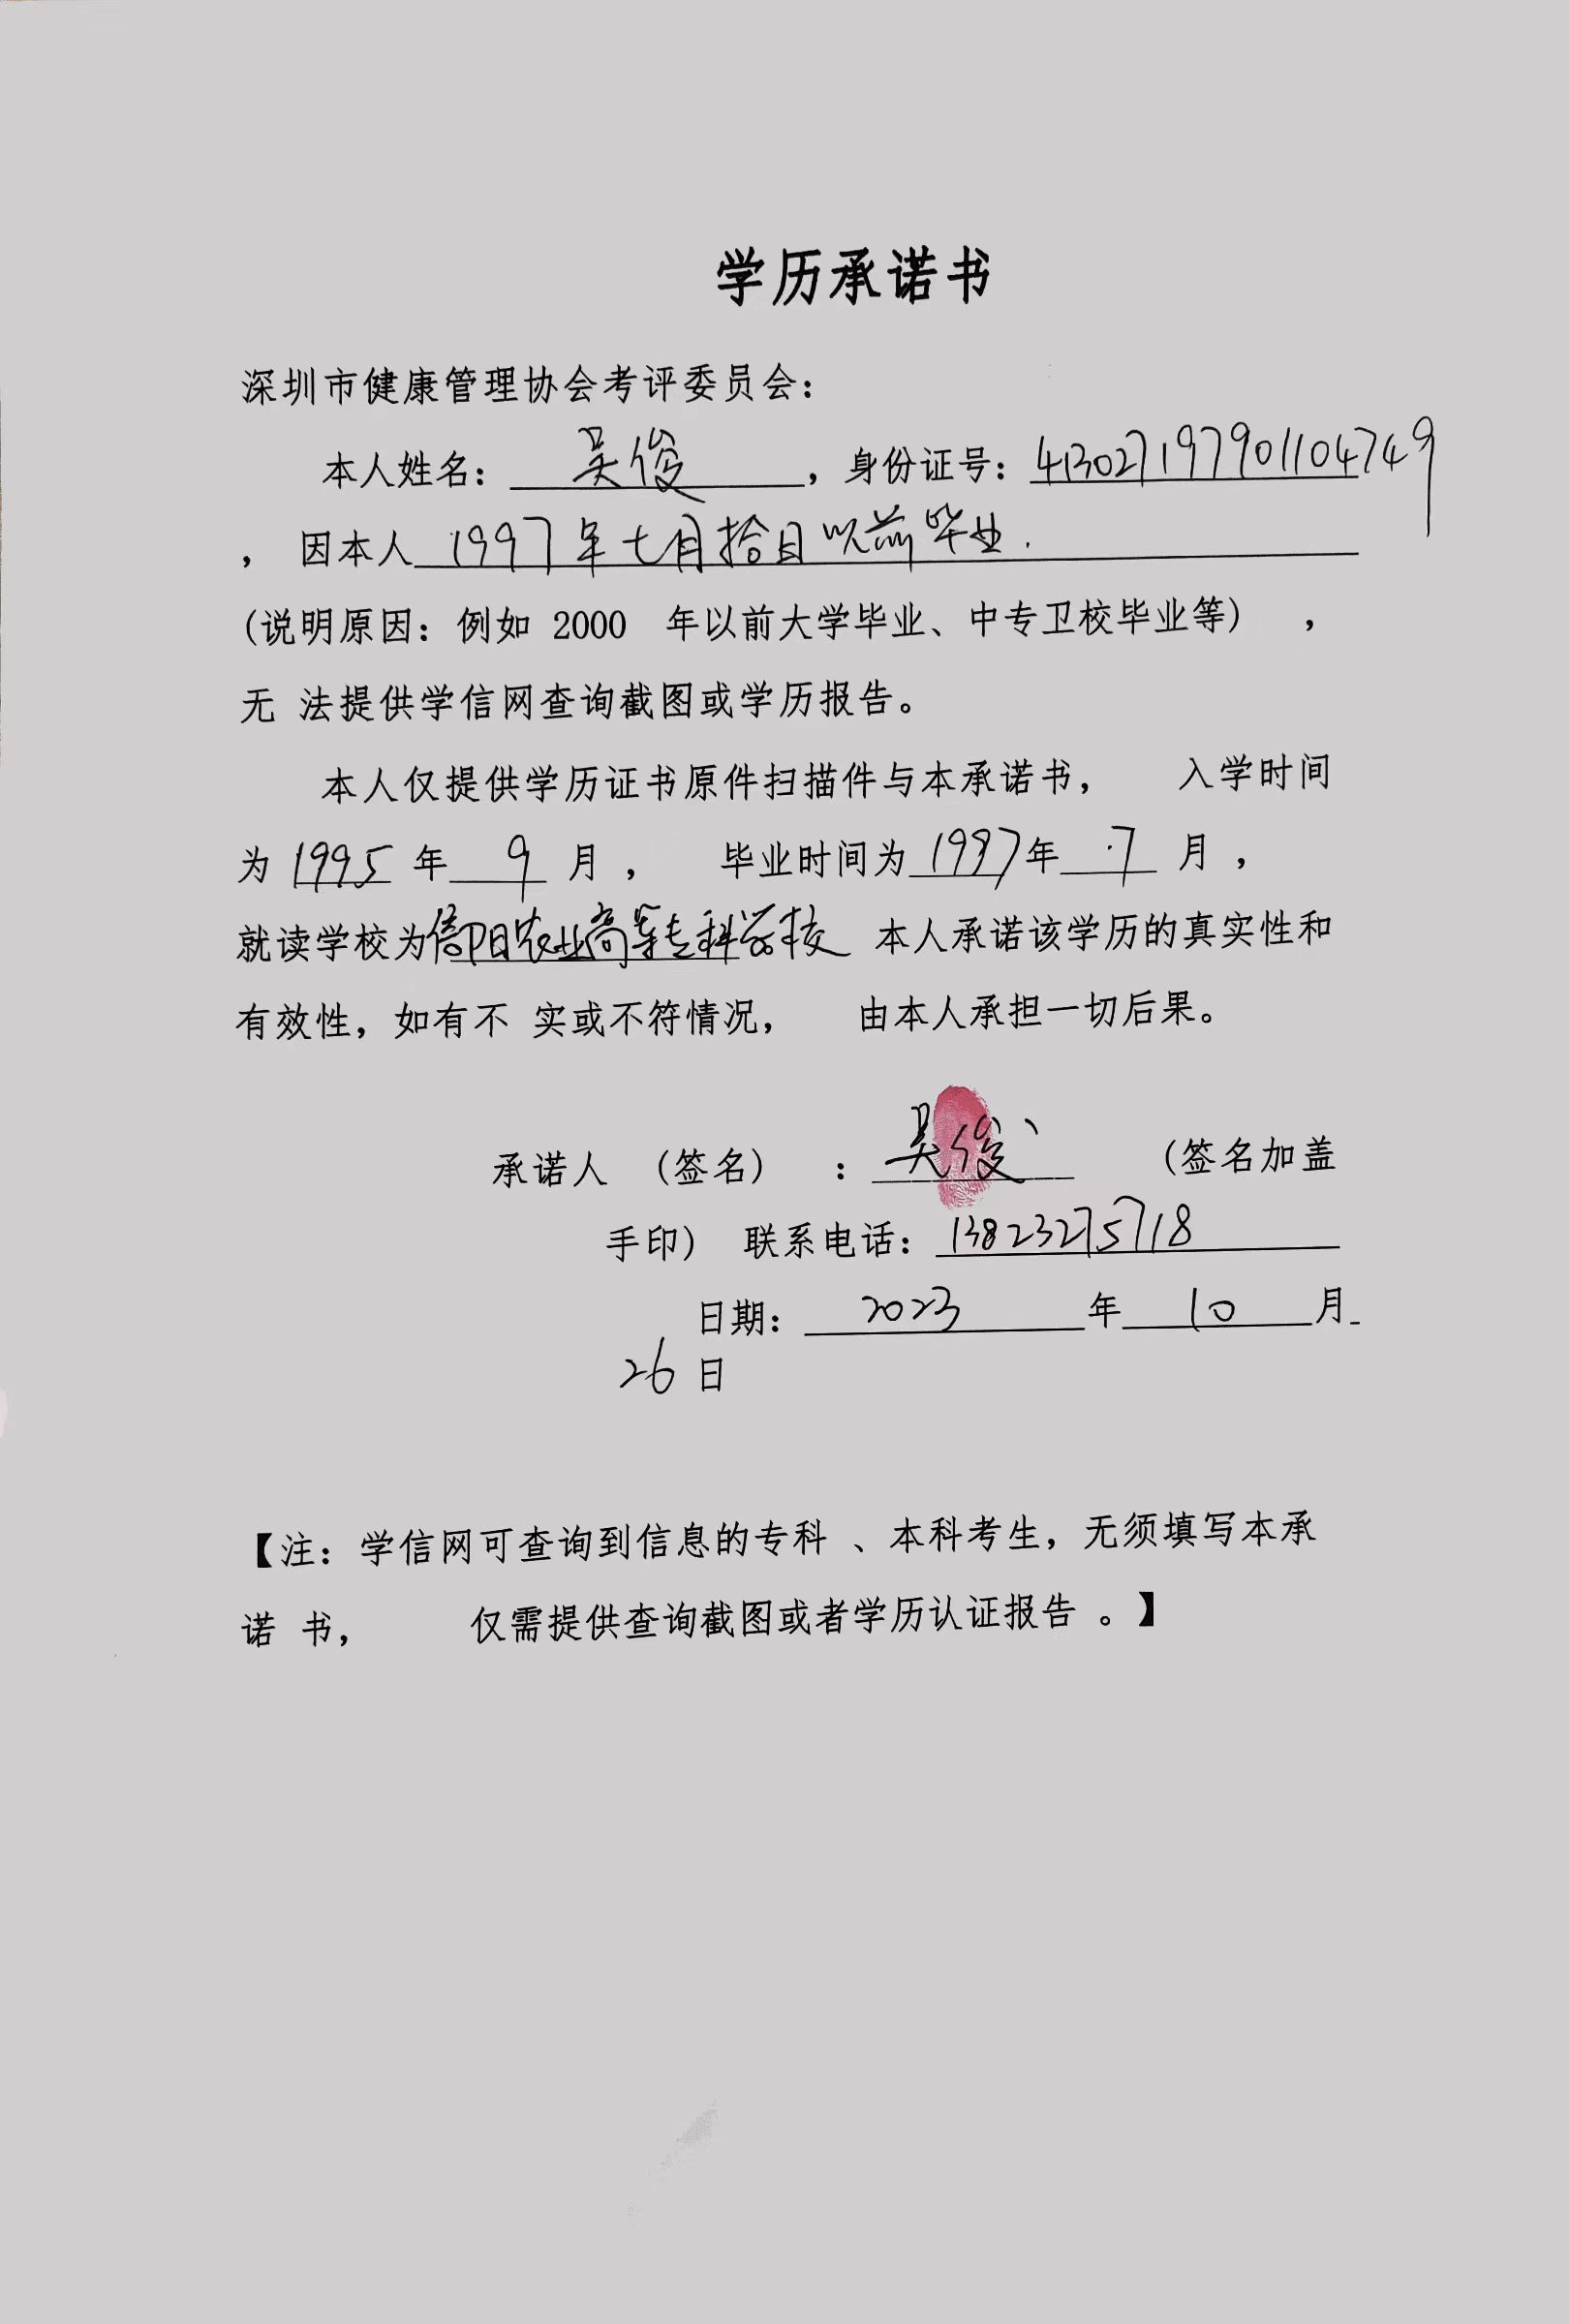 学历承诺书
深圳市健康管理协会考评委员会：
本人姓名：吴俊，身份证号：413027197901104749
，因本人1997年七月拾日以前毕业.
(说明原因：例如 2000 年以前大学毕业、中专卫校毕业等) ，
无 法提供学信网查询截图或学历报告。
本人仅提供学历证书原件扫描件与本承诺书， 入学时间
为 1995 年 9 月 ， 毕业时间为 1997 年 7 月 ，
就读学校为信阳农业高等专科学校 本人承诺该学历的真实性和
有效性，如有不 实或不符情况， 由本人承担一切后果。
承诺人 (签名) ：吴俊 (签名加盖
手印) 联系电话：13823275718
日期： 2023 年 10 月
26 日
【注：学信网可查询到信息的专科 、本科考生，无须填写本承
诺 书， 仅需提供查询截图或者学历认证报告 。】